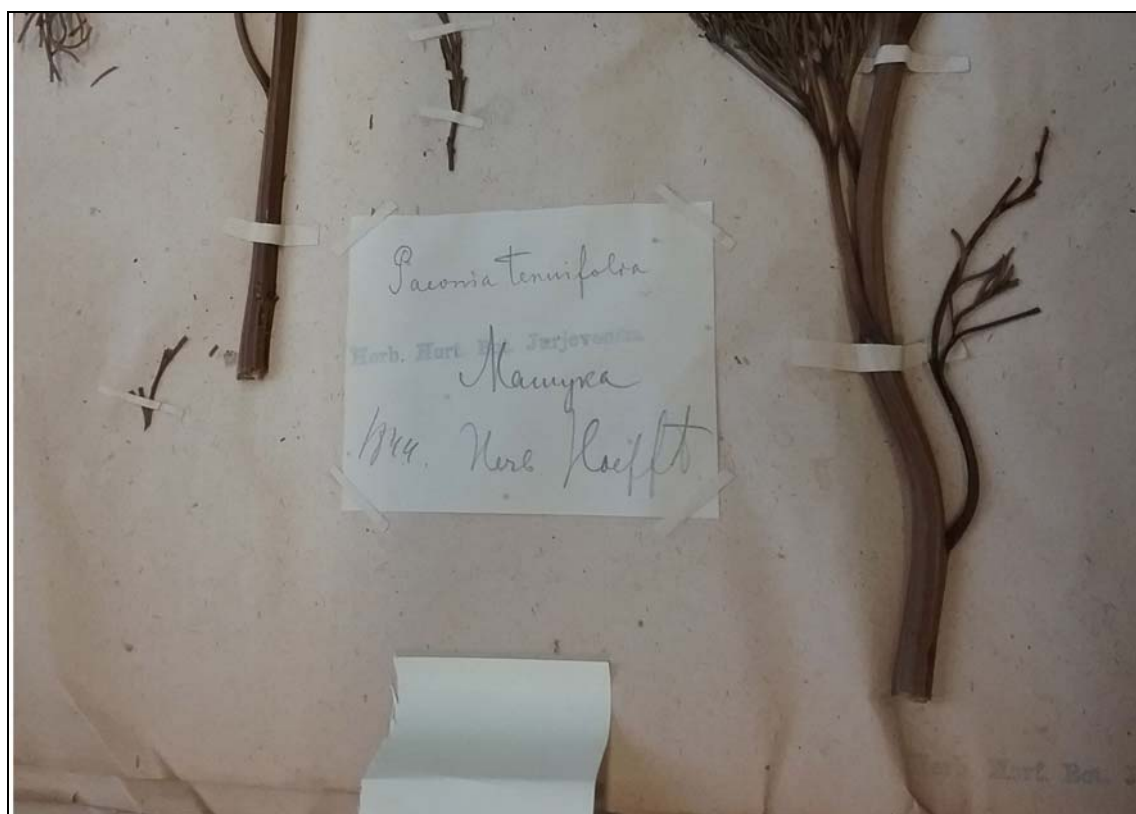 Paeonia tenuifolia
Herb. Hort. Bot. Jurjevensis
Машука
1844. Herb Hoefft
Herb. Hort. Bot. J